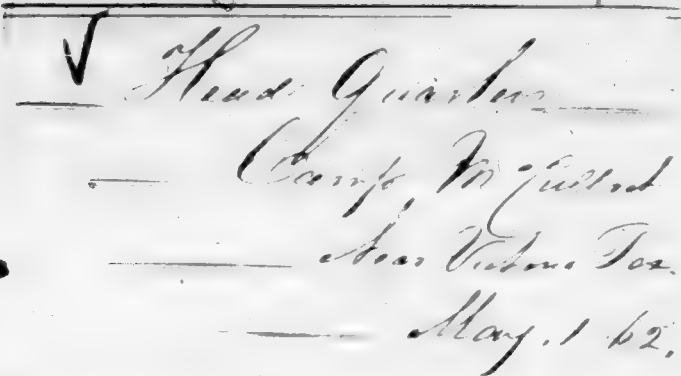 Head Quarters
Camp McCulloch
Near Victoria Tex.
May. 1 62.